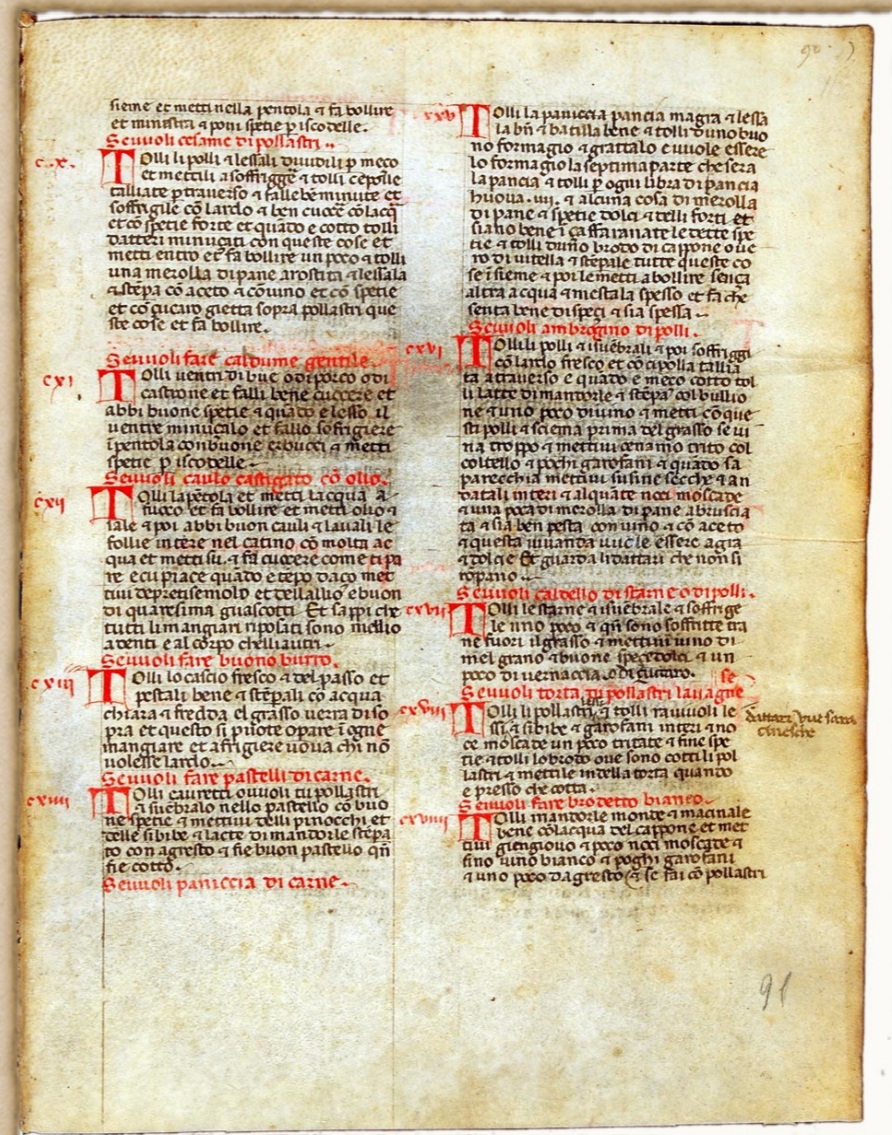 sieme et metti nella pentola ⁊ fa bollire
et ministra ⁊ poni spetie p iscodelle.
Se vuoli cesame di pollastri
c.x.
Tolli li polli ⁊ lessali dividili p meço
et mettili a soffriggẽ ⁊ tolli cepolle
talliate p traverso ⁊ falle bẽ minute et
soffrigile cõ lardo ⁊ ben cuocẽ cõ lacq̃
et cõ spetie forte et quãdo e cotto tolli
datteri minuçati con queste cose et
metti entro et fa bollire un poco ⁊ tolli
una merolla di pane arostita ⁊ lessala
⁊ stẽpa cõ aceto ⁊ cõ vino et cõ spetie
et cõ çucaro gietta sopra pollastri que
ste cose et fa bollire.
Se vuoli fare caldume gentile.
cxi
Tolli ventri di bue o di porco o di
castrone et falli bene cuocere et
abbi buone spetie ⁊ quãdo e lesso il
ventre minuçalo et fallo soffrigiere
ĩ pentola con buone erbucci ⁊ metti
spetie p iscodelle.
Se vuoli caulo castigato cõ olio.
cxii
Tolli la pẽtola et metti lacqua a
fuoco et fa bollire et metti olio ⁊
sale ⁊ poi abbi buon cauli ⁊ lavali le
follie intere nel catino cõ molta ac
qua et metti su. ⁊ fa cuocere come ti pa
re e cui piace quãdo e tẽpo daço met
tivi depretisemolo et dellallio e buon
di quaresima guascotti. Et sappi che
tutti li mangiari riposati sono mellio
a denti e al corpo chelli autri.
Se vuoli fare buono burro.
cxiii
Tolli lo cascio fresco ⁊ del passo et
pestali bene ⁊ stẽpali cõ acqua
chiara ⁊ fredda el grasso verra di so
pra et questo si puote opare ĩ ogne
mangiare et a frigiere uova chi nõ
volesse lardo.
Se vuoli fare pastelli di carne.
cxiiii
Tolli cauretti o vuoli tu pollastri
⁊ smẽbralo nello pastello cõ buo
ne spetie ⁊ mettivi delli pinocchi et
delle sibibe ⁊ lacte di mandorle stẽpa
to con agresto ⁊ fie buon pastello qñ
fie cotto.
Se vuoli paniccia di carne.
cxv
Tolli la paniccia pancia magra ⁊ lessa
la bñ ⁊ batilla bene ⁊ tolli duno buo
no formagio ⁊ grattalo e vuole essere
lo formagio la septima parte che sera
la pancia ⁊ tolli p ogni libra di pancia
huova .iiii. ⁊ alcuna cosa di merolla
di pane ⁊ spetie dolci ⁊ delli forti et
siano bene ĩçaffaranate le dette spe
tie ⁊ tolli duno brodo di cappone o ve
ro di vitella ⁊ stẽpale tutte queste co
se ĩsieme ⁊ poi le metti a bollire sença
altra acqua ⁊ mestala spesso et fa che
senta bene di speçi ⁊ sia spessa.
Se vuoli ambrogino di polli.
cxvi
Tolli li polli ⁊ ismẽbrali ⁊ poi soffriggi
cõ lardo fresco et cõ cipolla tallia
ta a traverso e quãdo e meço cotto tol
li latte di mandorle ⁊ stẽpa col bullio
ne ⁊ uno poco di vino ⁊ metti cõ que
sti polli ⁊ sciema prima del grasso se vi
na troppo ⁊ mettivi cenamo trito col
coltello ⁊ pochi garofani ⁊ quãdo sa
parecchia mettivi susine secche ⁊ an
dattali interi ⁊ alquãte noci moscade
⁊ una poca di merolla di pane abruscia
ta ⁊ sia ben pesta con vino ⁊ cõ aceto
⁊ questa vivanda vuole essere agra
⁊ dolcie Et guarda li dattari che non si
ropano.
Se vuoli caldello di starne o di polli.
cxvii
Tolli le starne ⁊ ismẽbrale ⁊ soffrige
le uno poco ⁊ qñ sono soffritte tra
ne fuori il grasso ⁊ mettivi vino di
mel grano ⁊ buone specie dolci ⁊ un
poco di vernaccia. o di çuccaro.
se
Se vuoli torta di pollastri lavagne
cxviii
Tolli li pollastri ⁊ tolli ravvuoli le
ssi ⁊ sibibe ⁊ garofani interi ⁊ no
ce moscade un poco tritate ⁊ fine spe
tie ⁊ tolli lo brodo ove sono cotti li pol
lastri ⁊ mettile indella torta quando
e presso che cotta.
Se vuoli fare brodetto bianco.
cxviiii
Tolli mandorle monde ⁊ macinale
bene cõ lacqua del cappone et met
tivi giengiovo ⁊ poco noci moscade ⁊
fino vino bianco ⁊ poghi garofani
⁊ uno poco dagresto ⁊ se fai cõ pollastri